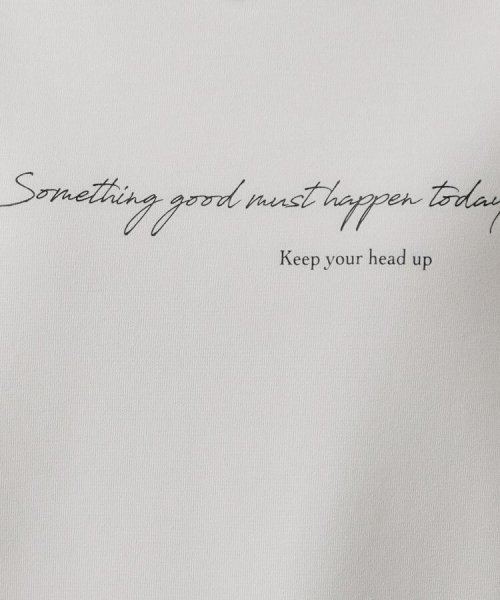 Something good must happen today
Keep your head up